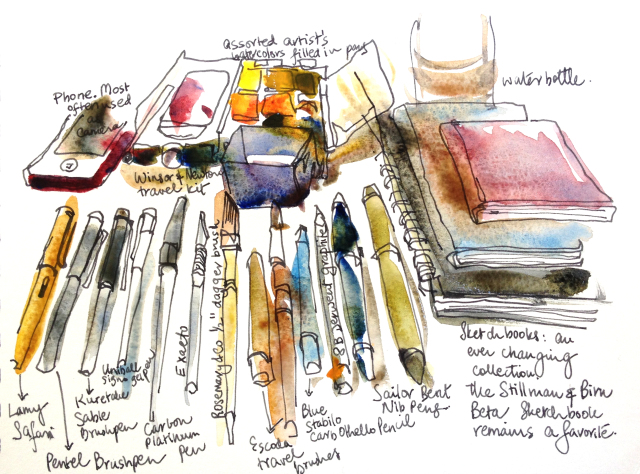 assorted artist's
watercolors filled in pans
Phone. Most
often used
as
camera
waterbottle.
Winsor & Newton
travel kit
Lamy
Safari
Pentel Brushpen
Kuretake
Sable
Brushpen
Uniball
Signo gel pen
Carbon
Platinum
Pen
Exacto
Rosemary & Co ½" dagger brush
Escoda
travel
brushes
Blue
Stabilo
CarbOthello Pencil
8B penword graphite
Sailor Bent
Nib Pens
Sketchbooks: an
ever changing
collection.
the Stillman & Birn
Beta Sketchbook
remains a favorite.